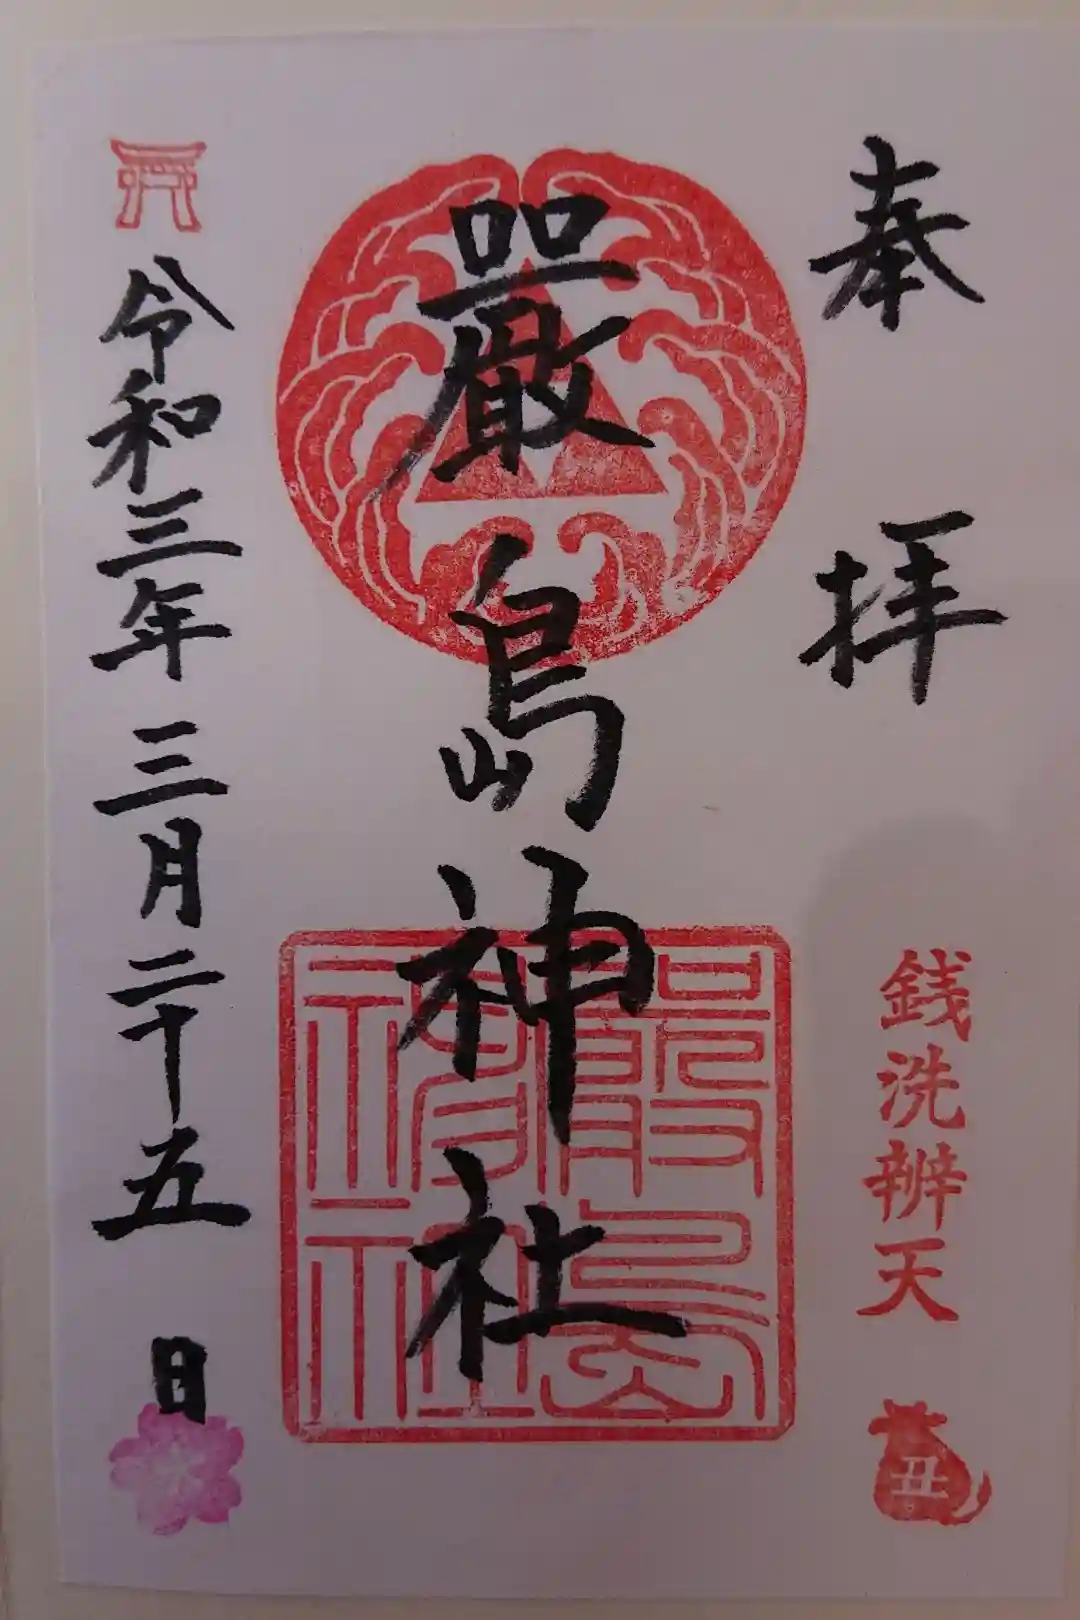 奉拝
銭洗辨天
丑
嚴島神社
嚴島神社
令和三年三月二十五日